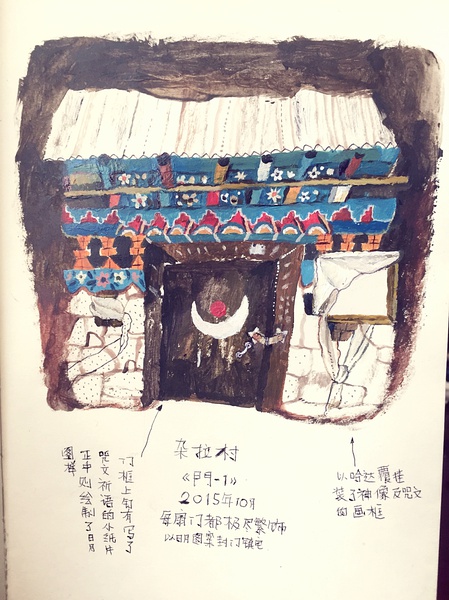 门框上钉有写了
咒文祈语的小纸片
正中则绘制了日月
图样
杂拉村
《門-1》
2015年10月
每扇门都极尽繁饰
以日月图案封门镇宅
以哈达覆挂
装了神像及咒文
的画框